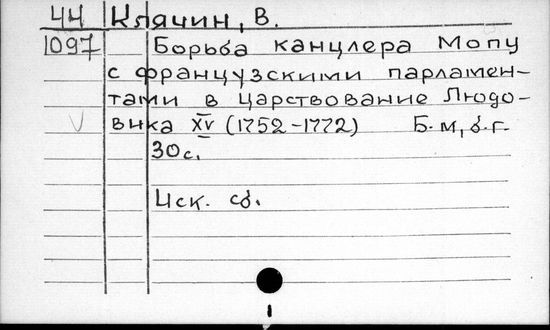 44 Клячин, В.
1097 Борьба канцлера Мопу
с французскими парламен-
тами в царствование Людо-
вика XV (1752-1772) Б.м, б.г.
30с.
Иск. сб.